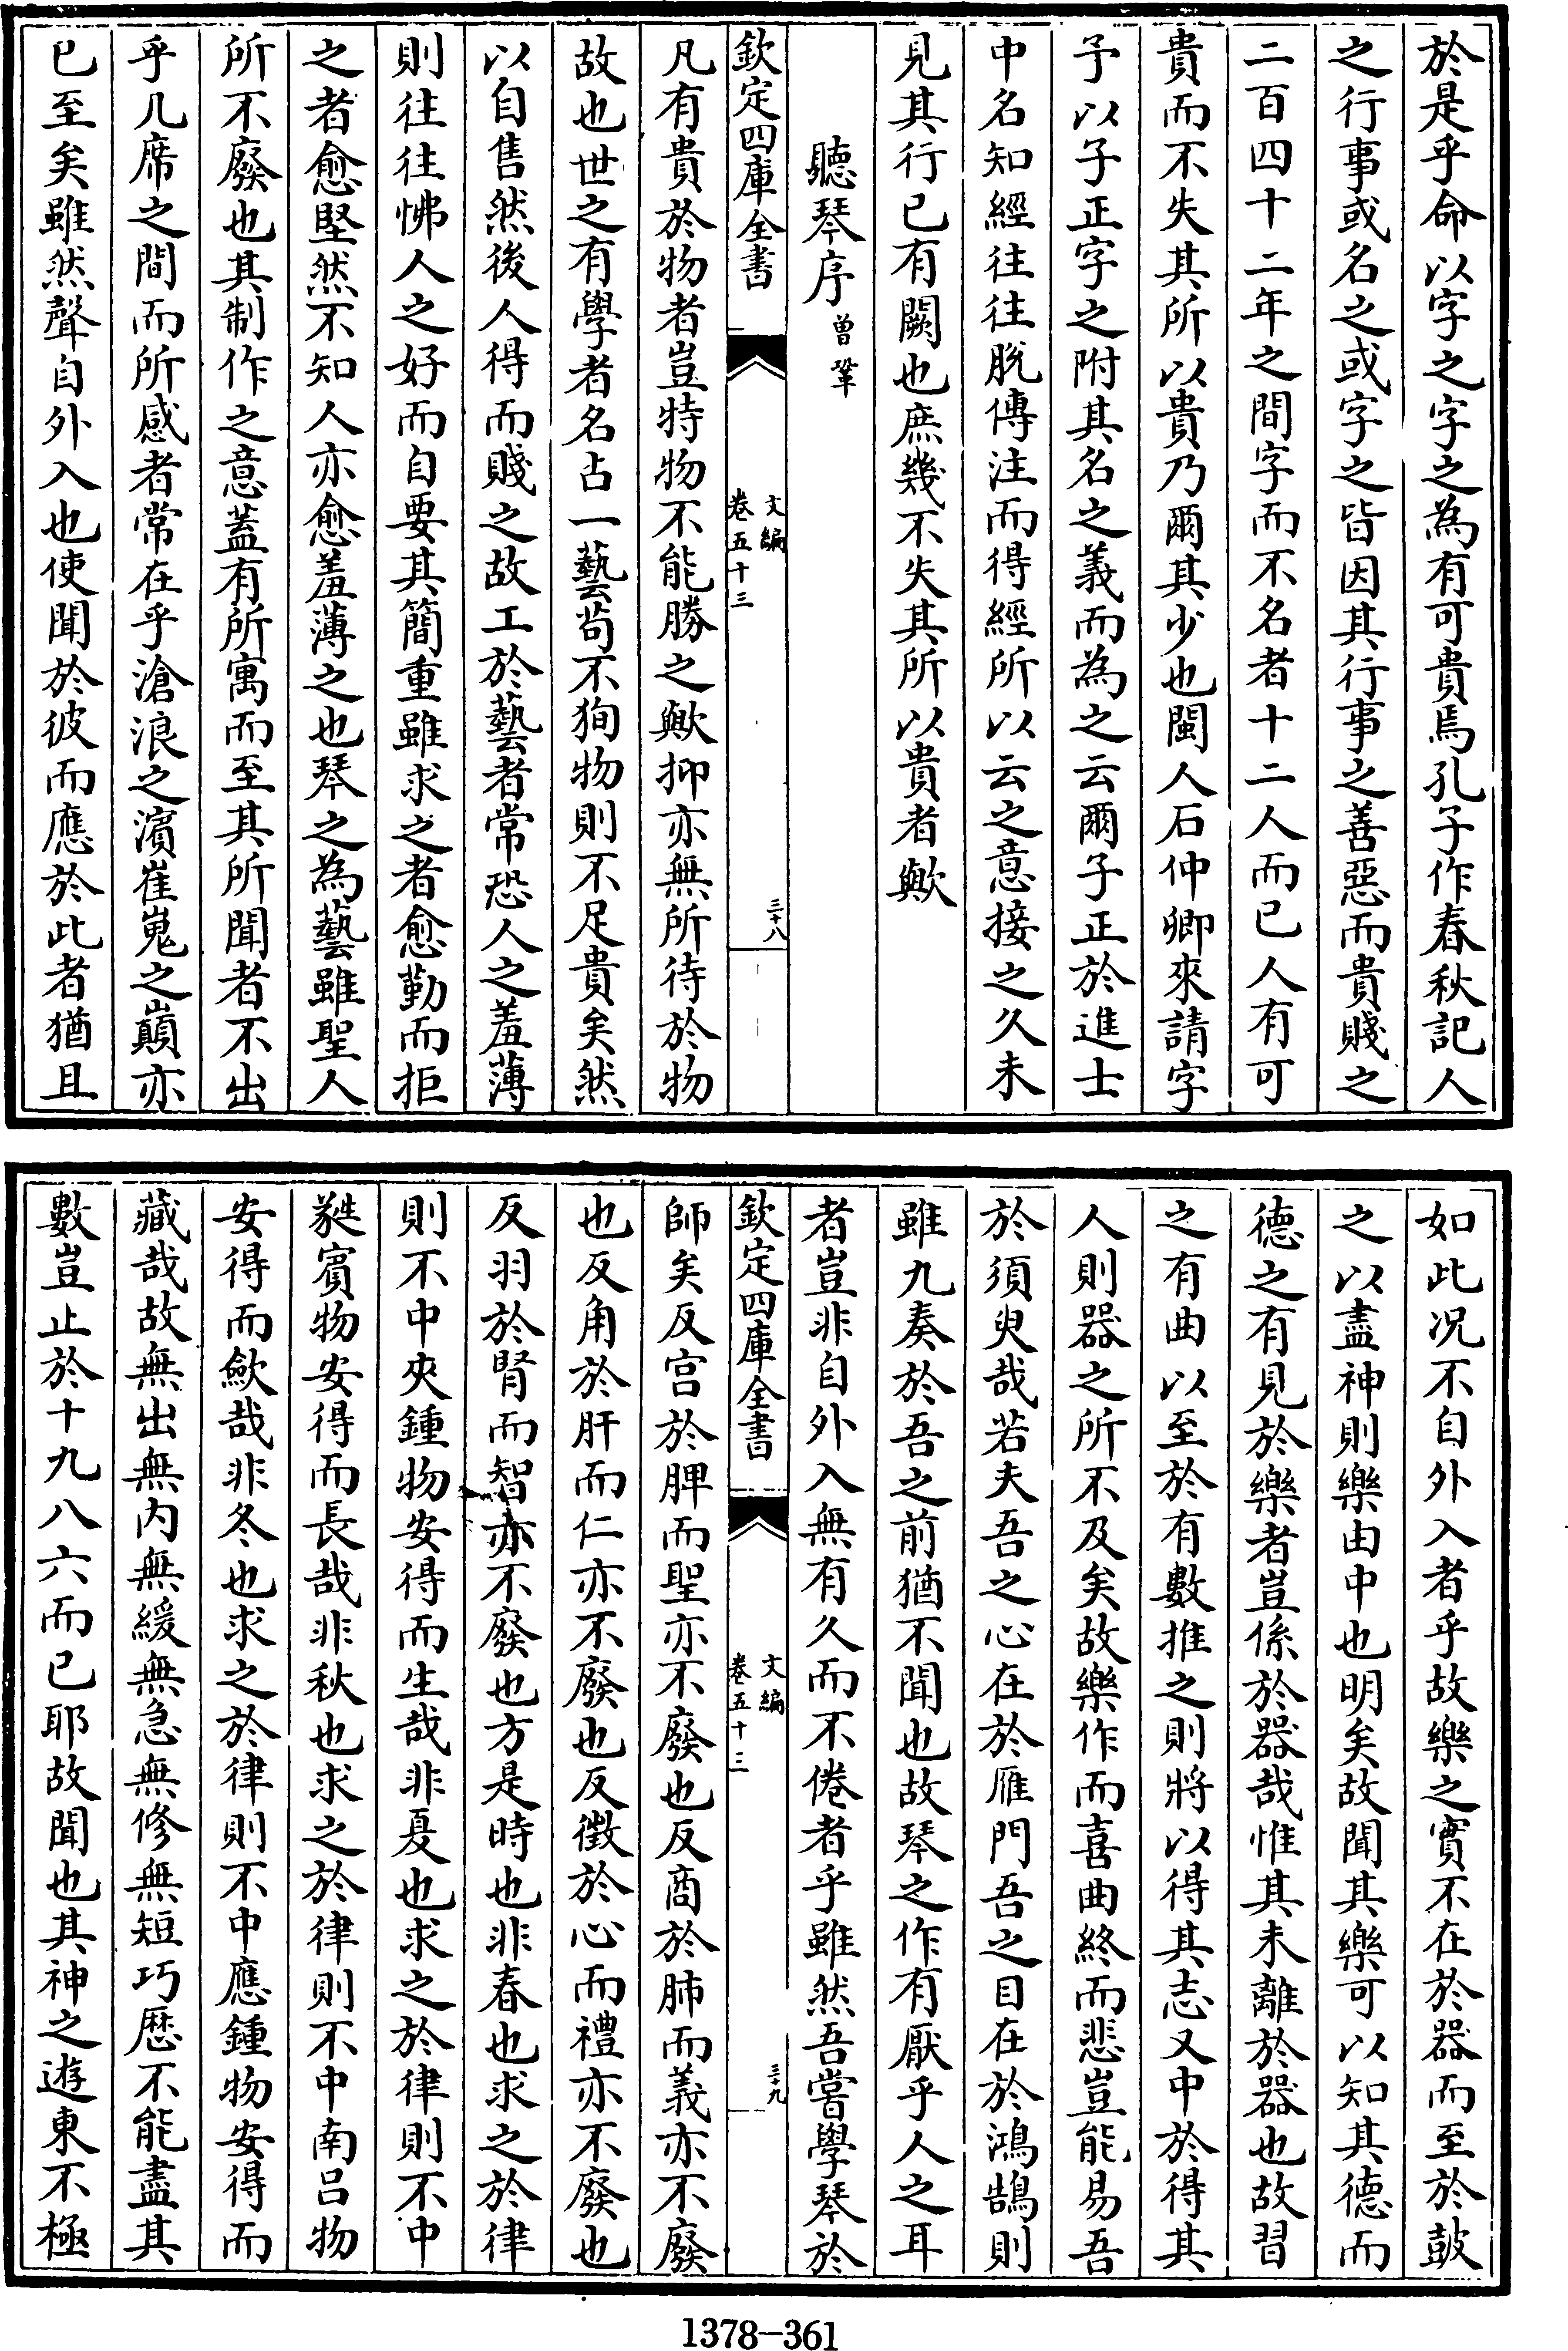 於是乎命以字之字之為有可貴焉孔子作春秋記人
之行事或名之或字之皆因其行事之善惡而貴賤之
二百四十二年之間字而不名者十二人而已人有可
貴而不失其所以貴乃爾其少也閩人石仲卿來請字
予以子正字之附其名之義而為之云爾子正於進士
中名知經往往脫傳注而得經所以云之意接之久未
見其行已有闕也庶幾不失其所以貴者歟
聽琴序 曾鞏
欽定四庫全書
文編
卷五十三
三十八
凡有貴於物者豈特物不能勝之歟抑亦無所待於物
故也世之有學者名占一藝苟不狥物則不足貴矣然
以自售然後人得而賤之故工於藝者常恐人之羞薄
則往往怫人之好而自要其簡重雖求之者愈勤而拒
之者愈堅然不知人亦愈羞薄之也琴之為藝雖聖人
所不廢也其制作之意蓋有所寓而至其所聞者不出
乎几席之間而所感者常在乎滄浪之濱崔嵬之巔亦
已至矣雖然聲自外入也使聞於彼而應於此者猶且
如此况不自外入者乎故樂之實不在於器而至於鼓
之以盡神則樂由中也明矣故聞其樂可以知其德而
德之有見於樂者豈係於器哉惟其未離於器也故習
之有曲以至於有數推之則將以得其志又中於得其
人則器之所不及矣故樂作而喜曲終而悲豈能易吾
於須臾哉若夫吾之心在於雁門吾之目在於鴻鵠則
雖九奏於吾之前猶不聞也故琴之作有厭乎人之耳
者豈非自外入無有久而不倦者乎雖然吾嘗學琴於
欽定四庫全書
文編
卷五十三
三十九
師矣反宫於脾而聖亦不廢也反商於肺而義亦不廢
也反角於肝而仁亦不廢也反徵於心而禮亦不廢也
反羽於腎而智亦不廢也方是時也非春也求之於律
則不中夾鍾物安得而生哉非夏也求之於律則不中
蕤賓物安得而長哉非秋也求之於律則不中南吕物
安得而歛哉非冬也求之於律則不中應鍾物安得而
藏哉故無出無内無緩無急無修無短巧厯不能盡其
數豈止於十九八六而已耶故聞也其神之遊東不極
1378-361